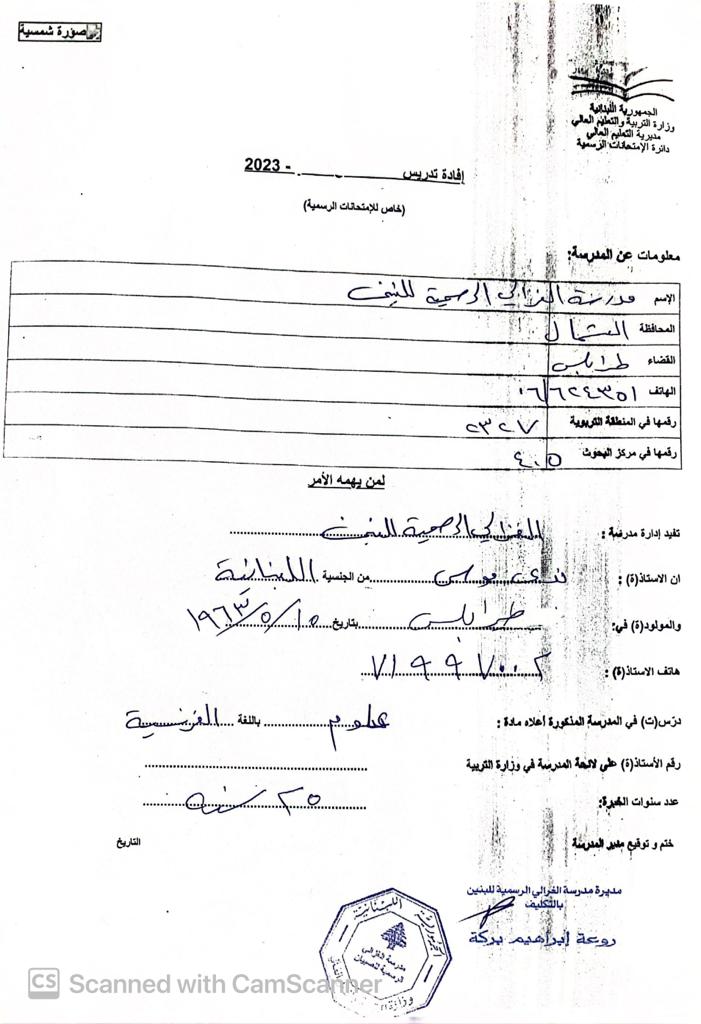 صورة شمسية
الجمهورية اللبنانية
وزارة التربية والتعليم العالي
مديرية التعليم العالي
دائرة الإمتحانات الرسمية
إفادة تدريس ـــــــ - 2023
(خاص للإمتحانات الرسمية)
معلومات عن المدرسة:
الإسم مدرسة الغزالي الرسمية للبنين
المحافظة الشمال
القضاء طرابلس
الهاتف ٠٦/٦٢٤٣٥١
رقمها في المنطقة التربوية ٢٣٢٧
رقمها في مركز البحوث ٤٠٥
لمن يهمه الأمر
تفيد إدارة مدرسة : الغزالي الرسمية للبنين
ان الاستاذ(ة) : من الجنسية اللبنانية
والمولود(ة) في: طرابلس بتاريخ ١٩٦٣/٥/١٥
هاتف الاستاذ(ة) : ٧١٩٩٧٠٠٢
درّس(ت) في المدرسة المذكورة أعلاه مادة : علوم باللغة الفرنسية
رقم الأستاذ(ة) على لائحة المدرسة في وزارة التربية
عدد سنوات الخبرة: ٢٥ سنة
ختم و توقيع مدير المدرسة التاريخ
مديرة مدرسة الغزالي الرسمية للبنين
بالتكليف
روعة إبراهيم بركة
الجمهورية اللبنانية
مدرسة الغزالي
الرسمية للصبيان
CS Scanned with CamScanner